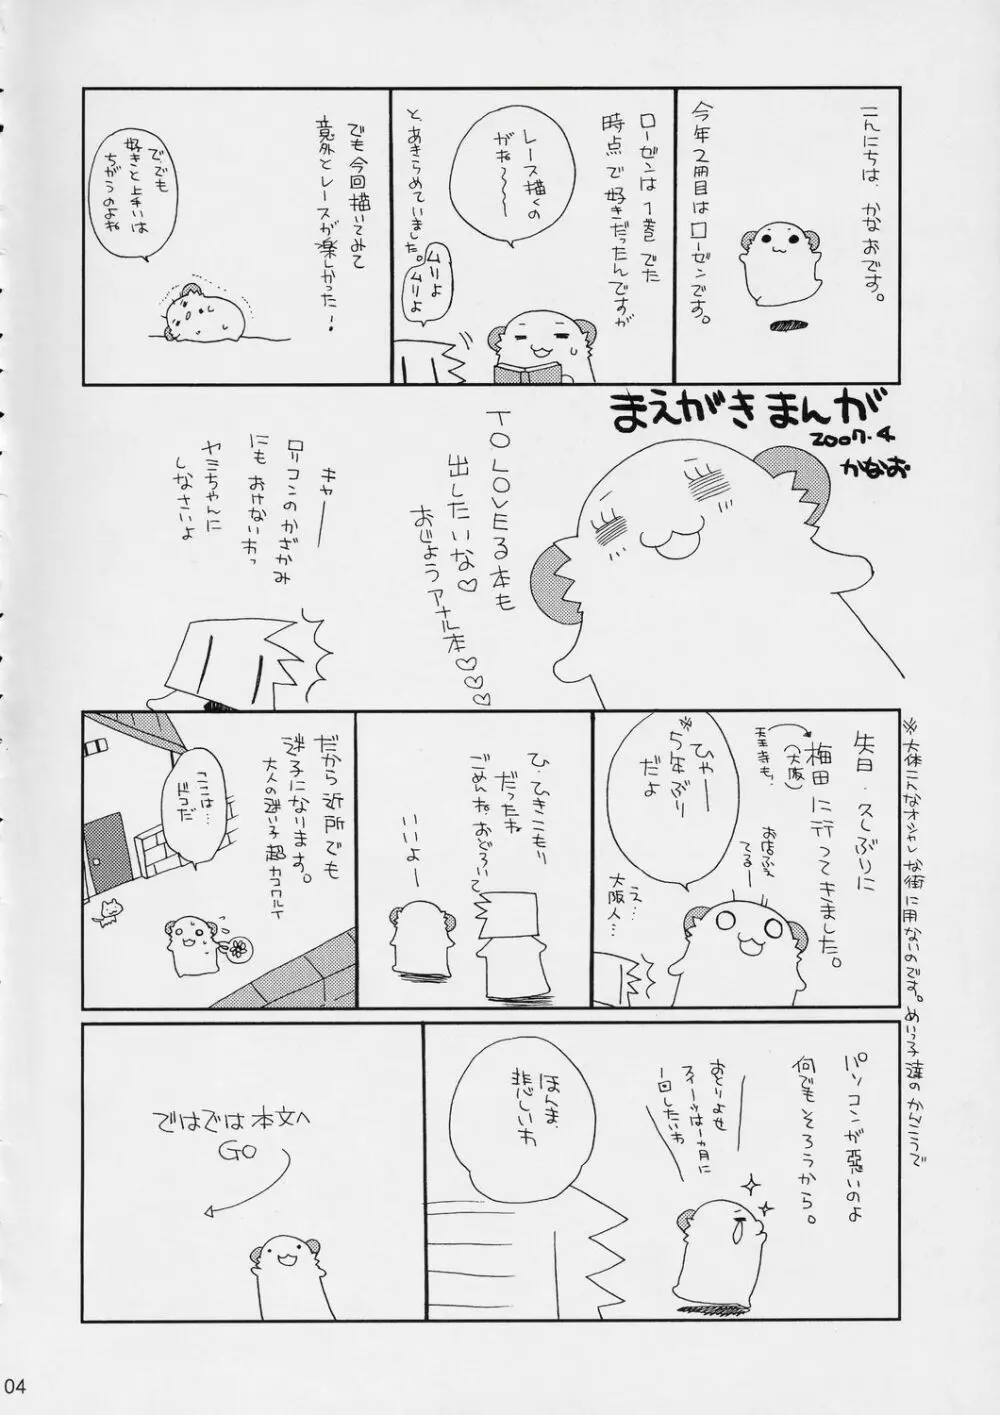 こんにちは、かなおです。
今年2冊目はローゼンです。
ローゼンは1巻でた
時点で好きだったんですが
レース描くの
がね〜〜〜
と、あきらめていました。
ムリよ
ムリよ
でも今回描いてみて
意外とレースが楽しかった!
で、でも
好きと上手いは
ちがうのよね
まえがきまんが
2007.4
かなお
TO LOVEる本も
出したいな♡
おじょうアナル本♡♡♡
キャー
ロリコンのかざかみ
にもおけないわっ
ヤミちゃんに
しなさいよ
先日・久しぶりに
梅田に行ってきました。
(大阪)
天王寺も。
お店ふえ
てるー
ひゃー
※5年ぶり
だよ
え…
大阪人…
※大体こんなオシャレな街に用ないのです。めいっ子達のかんこうで
ひ・ひきこもり
だったね
ごめんね、おどろいて
いいよー
だから近所でも
迷子になります。
大人の迷い子超カコワルイ
ここは…
ドコだ
パソコンが悪いのよ
何でもそろうから。
おとりよせ
スイーツは一ヵ月に
一回したいわ
ほんま、
悲しいわ
ではでは本文へ
GO
04